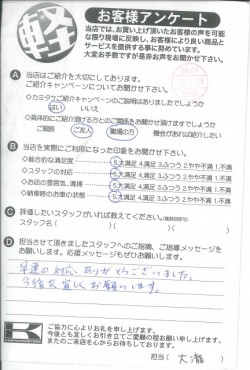 軽
お客様アンケート
当店では、お買い上げ頂いたお客様の声を可能
な限り現場に反映し、お客様により良い商品と
サービスを提供する事に努めています。
大変お手数ですが是非お声をお聞かせ下さい。
A 当店はご紹介を大切にしております。
ご紹介キャンペーンについてお聞かせ下さい。
◇カミタケご紹介キャンペーンのご説明はありましたでしょうか
はい いいえ
◇具体的にご紹介頂ける方とのご関係をお聞かせ頂けますでしょうか
ご親族 ご友人 職場の方 機会があればご紹介したい
B 当店を実際にご利用になった印象をお聞かせ下さい
◇総合的な満足度 5.大満足 4.満足 3.ふつう 2.やや不満 1.不満
◇スタッフの対応 5.大満足 4.満足 3.ふつう 2.やや不満 1.不満
◇お店の雰囲気、清掃 5.大満足 4.満足 3.ふつう 2.やや不満 1.不満
◇納車時のお車の状態 5.大満足 4.満足 3.ふつう 2.やや不満 1.不満
C 評価したいスタッフがいれば教えてください。(複数回答可)
スタッフ名( )( )
D 担当させて頂きましたスタッフへのご指摘、ご指導メッセージを
お願いします。応援メッセージもぜひお願いします。
早速の対応、ありがとうございました。
今後も宜しくお願いします。
ご協力に心よりお礼を申し上げます。
今後とも宜しくお引き立てご愛顧の程お願い申し上げます。
またのご来店を心からお待ちしております。
担当( 大瀧 )